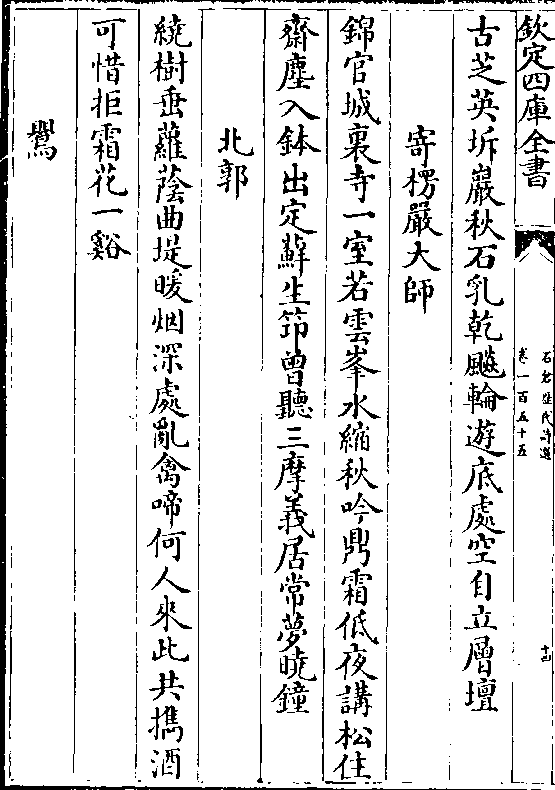 欽定四庫全書
石倉歷代詩選
卷一百五十五
十四
古芝英坼巖秋石乳乾飈輪遊底處空自立層壇
寄楞嚴大師
錦官城裏寺一室若雲峯水縮秋吟鼎霜低夜講松住
齋塵入鉢出定蘚生笻曾聽三摩義居常夢曉鐘
北郭
繞樹垂蘿蔭曲堤暖烟深處亂禽啼何人來此共攜酒
可惜拒霜花一谿
鷽